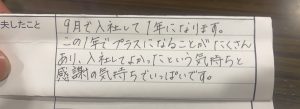 夫したこと
9月で入社して1年になります。
この1年でプラスになることがたくさん
あり、入社してよかったという気持ちと
感謝の気持ちでいっぱいです。